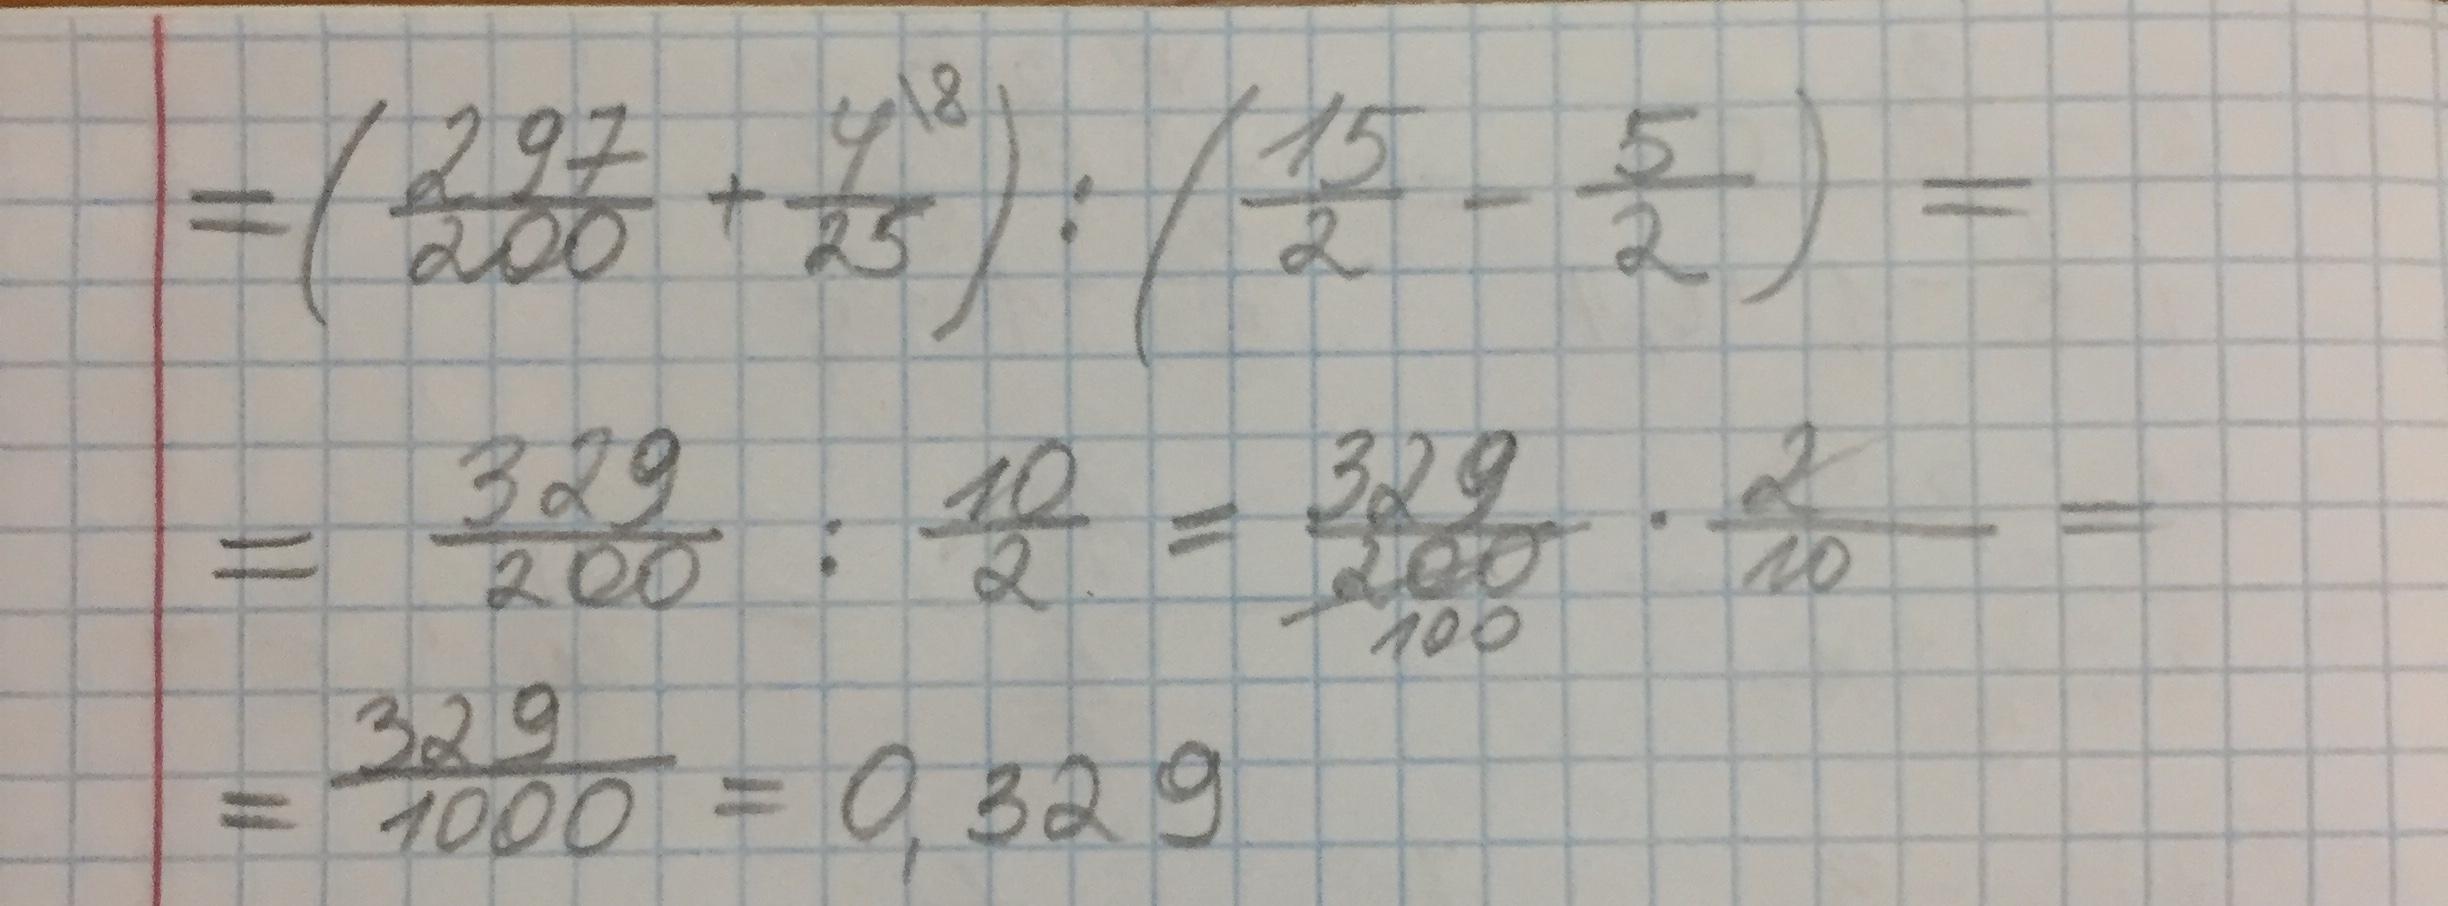 = (297/200 + 4\8/25) : (15/2 - 5/2) =
= 329/200 : 10/2 = 329/200 100 · 2/10 =
= 329/1000 = 0,329